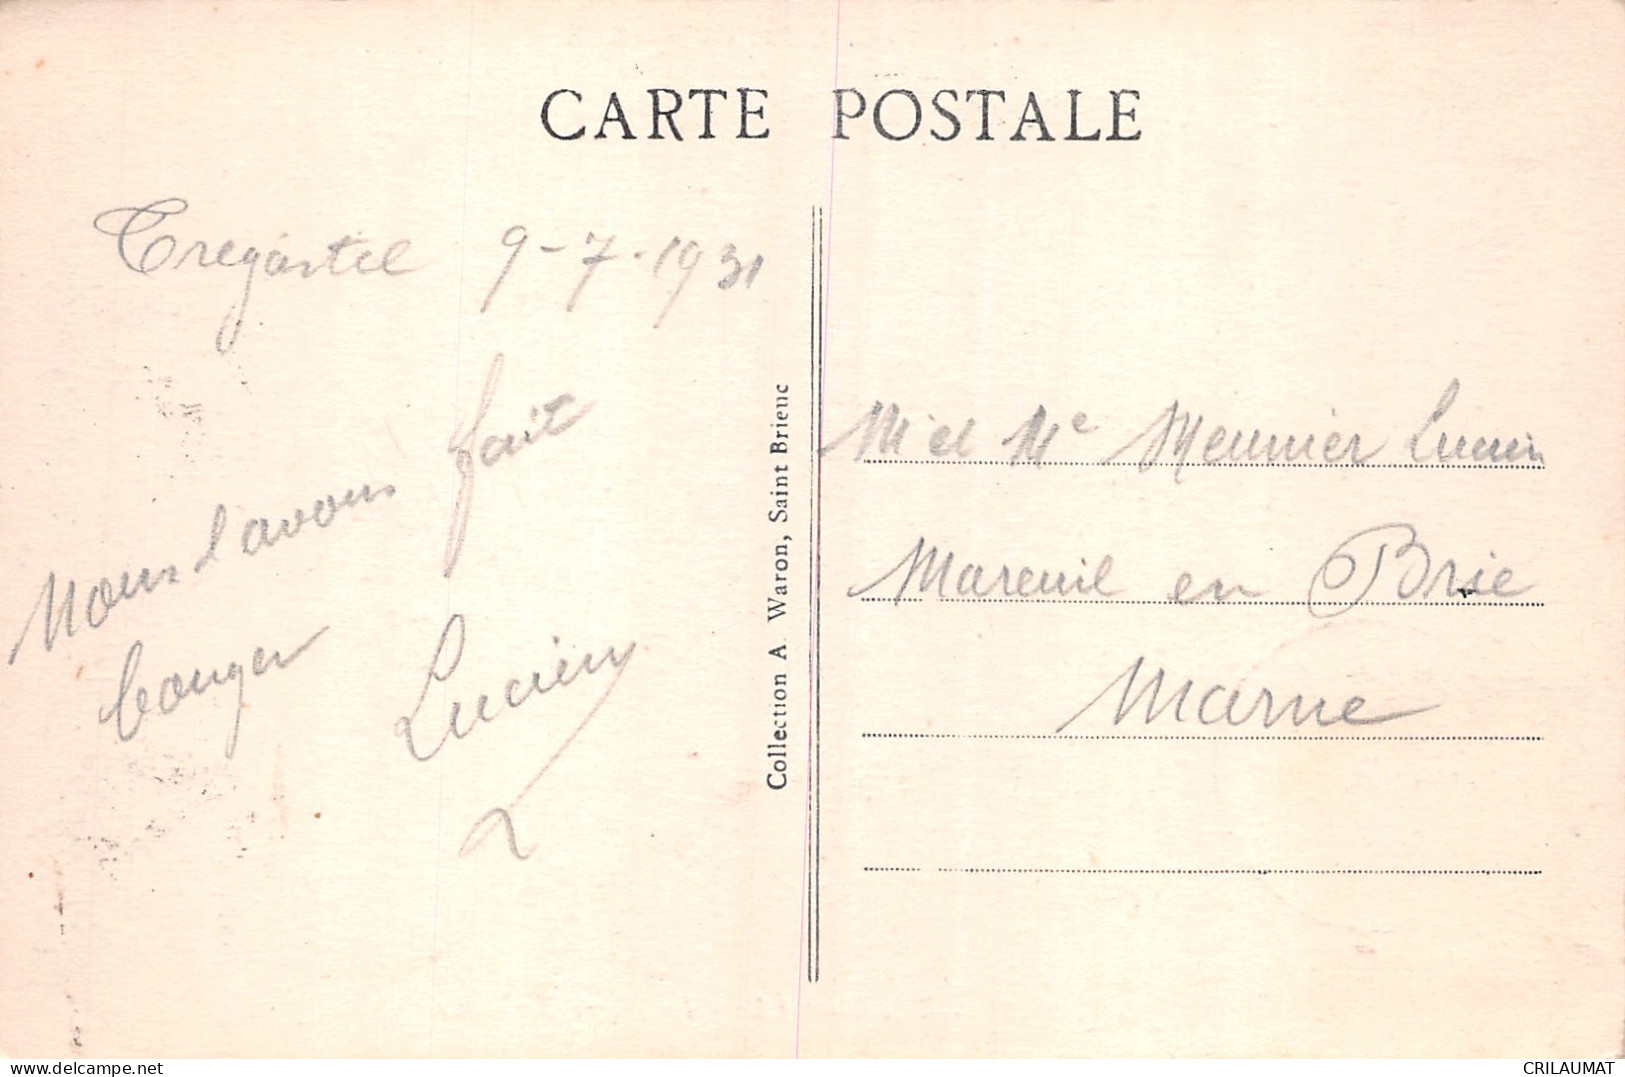 CARTE POSTALE
Tregastel 9-7-1931
Nous l'avons fait
bouger
Lucien
Collection A Waron, Saint Brieuc
Mr et Me Meunier Lucien
Mareuil en Brie
Marne
delcampe.net
CRILAUMAT